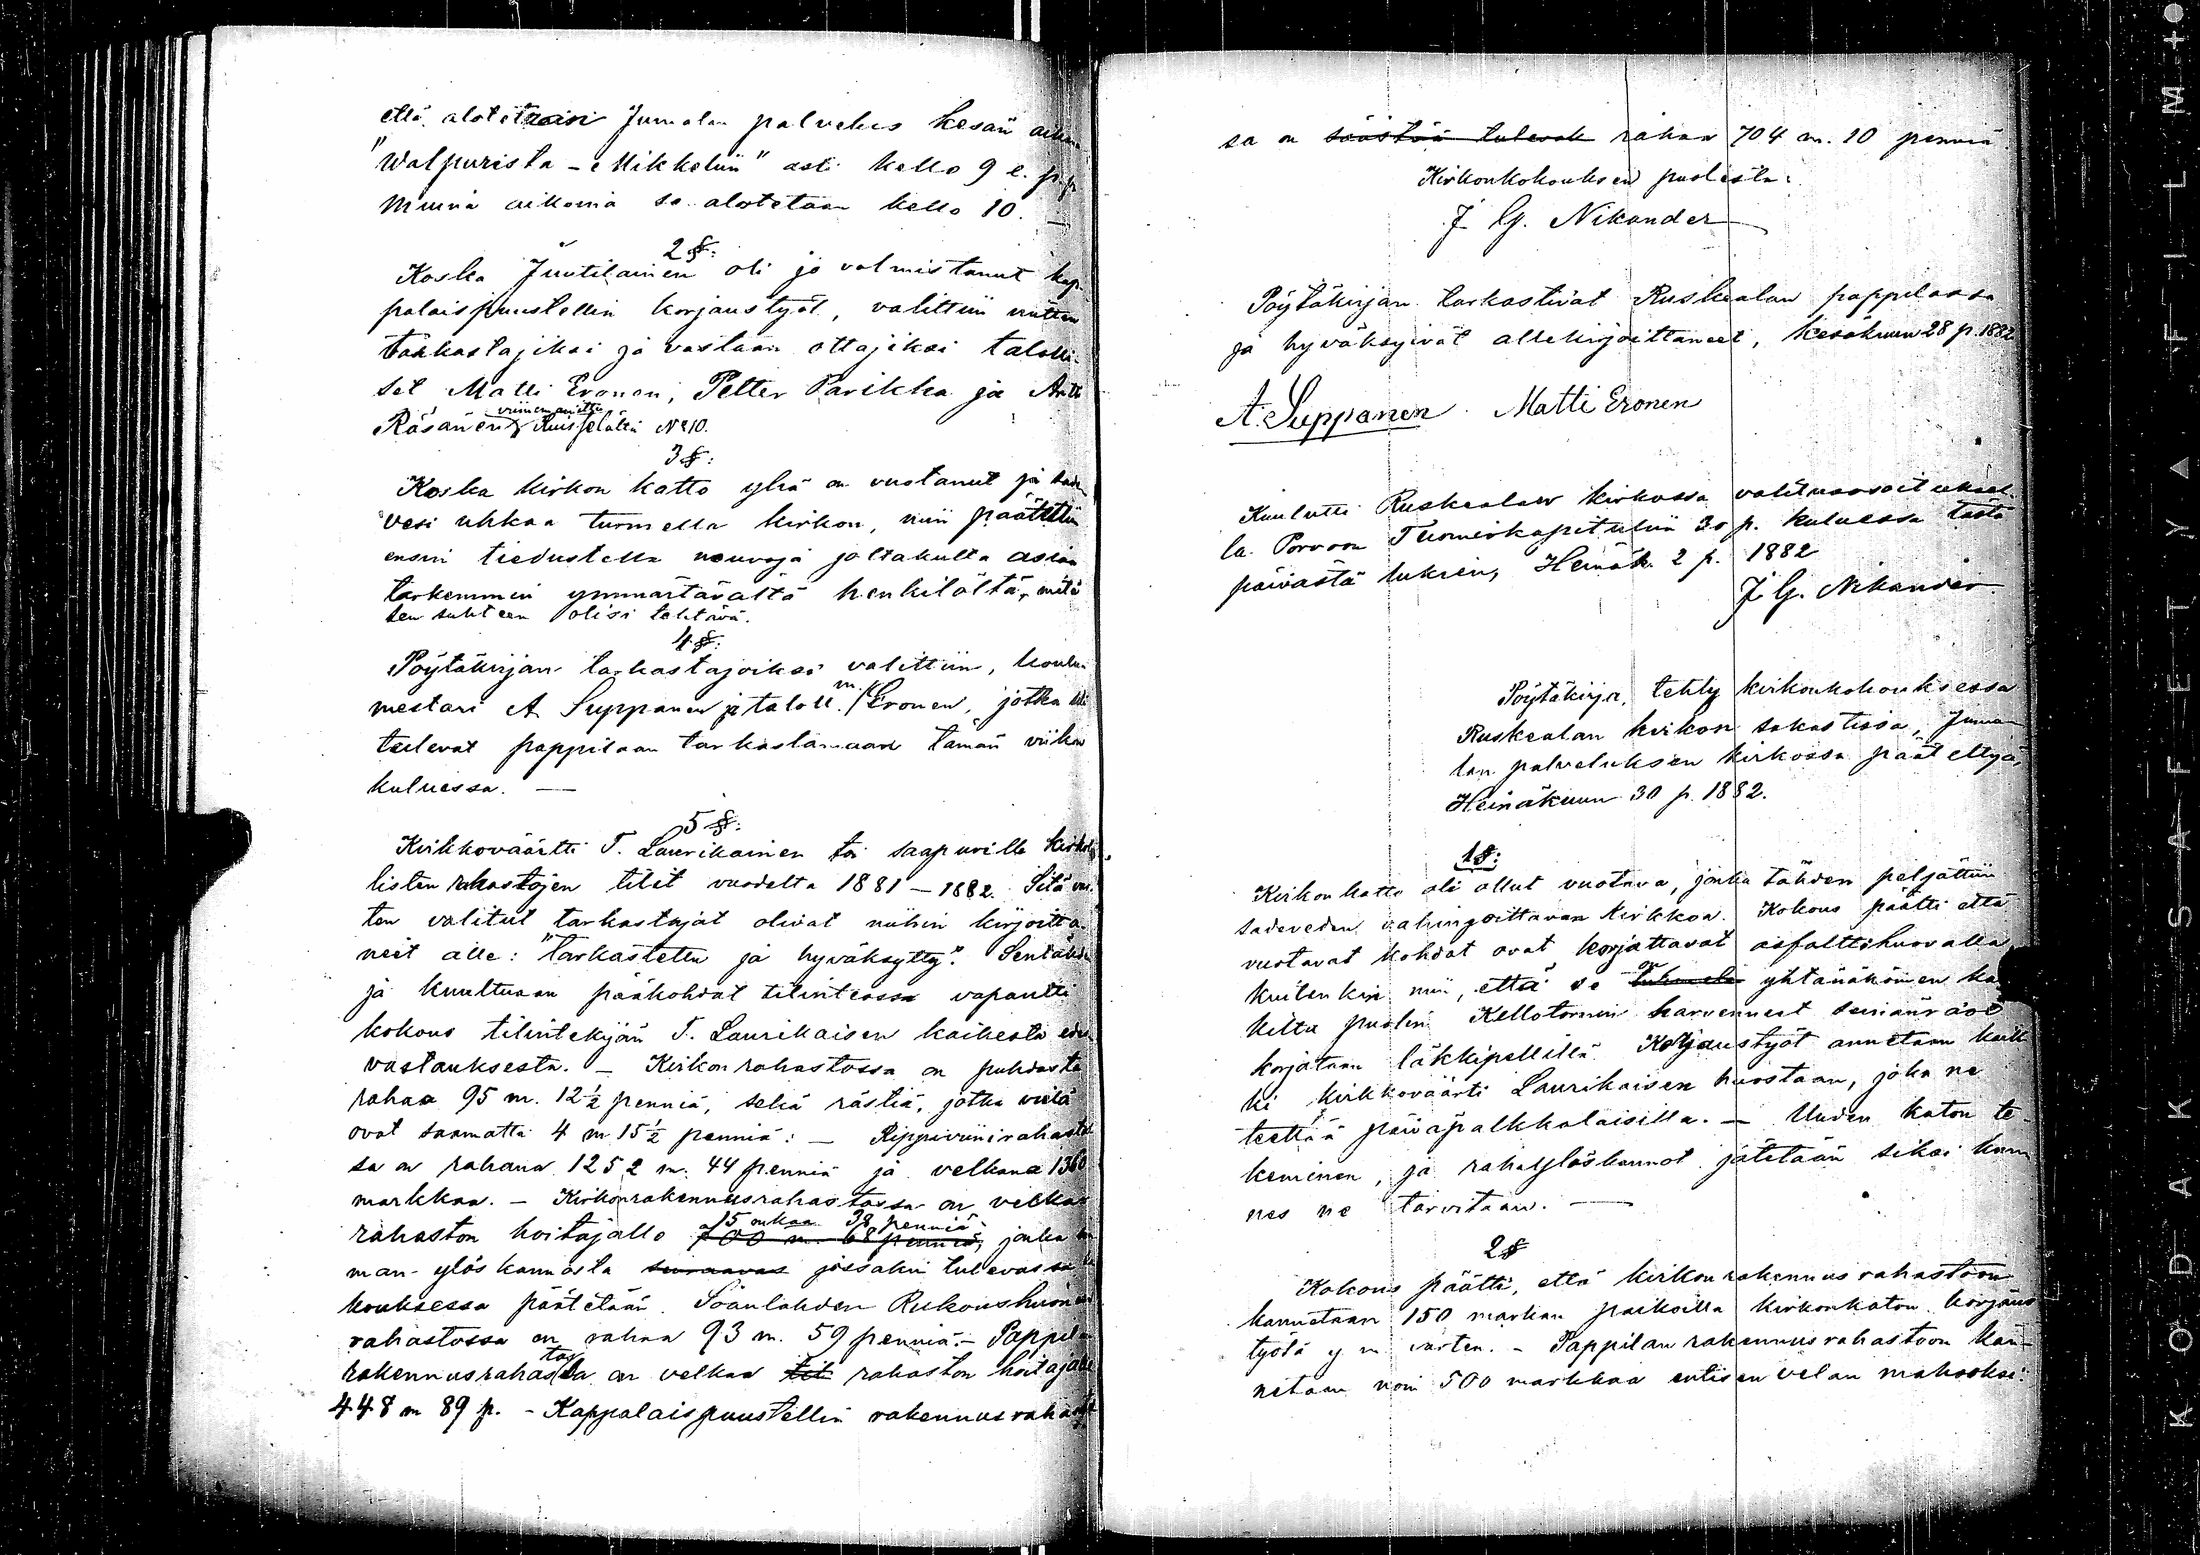 että alotettaisi Jumalan palvelus kesän aikana
"Walpurista - Mikkeliin" asti kello 9 e. p.p.
Muina aikoina se alotetaan kello 10. —
2 §:
Koska Juutilainen oli jo valmistanut kap-
palaispuustellin korjaustyöt, valittiin niitten
tarkastajiksi ja vastaan ottajiksi talolli-
set Matti Eronen, Petter Parikka ja Antti
viimemainittu
Räsänen Ruispelältä No 10.
3 §:
Koska kirkon katto yhä on vuotanut ja sade
vesi uhkaa turmella kirkon, niin päätettiin
ensin tiedustella neuvoja joltakulta asian
tarkemmin ymmärtävältä henkilöltä, mitä
sen suhteen olisi tehtävä.
4 §:
Pöytäkirjan tarkastajoiksi valittiin, koulu-
mestari A Suppanen ja taloll. M. Eronen, jotka
tulevat pappilaan tarkastamaan tämän viikon
kuluessa. —
5 §:
Kirkkoväärtti T. Laurikainen toi saapuville kirkol-
listen rahastojen tilit vuodelta 1881 — 1882. Sitä var-
ten valitut tarkastajat olivat niihin kirjoitta-
neet alle: "tarkastettu ja hyväksytty". Sentähden
ja kuultuaan pääkohdat tilinteossa vapautti
kokous tilintekijän T. Laurikaisen kaikesta edes-
vastauksesta. — Kirkon rahastossa on puhdasta
rahaa 95 m. 12½ penniä, sekä rästiä, jotka vielä
ovat saamatta 4 m 15½ penniä: — Rippiviinirahastos-
sa on rahana 1252 m. 44 penniä ja velkana 1360
markkaa. — Kirkonrakennusrahastossa on velkaa
15 mkaa 38 penniä
rahaston hoitajalle 700 m. 68 penniä, jonka
man ylöskannosta seuraavas jossakin tulevassa ko-
kouksessa päätetään. Soanlahden Rukoushuoneen
rahastossa on rahaa 93 m. 59 penniä. — Pappilan
rakennusrahastossa on velkaa til rahaston hoitajalle
448 m 89 p. - Kappalaispuustellin rakennusrahastos-
sa on säästöä tulevat rahaa 704 m. 10 penniä.
Kirkonkokouksen puolesta:
J G. Nikander
Pöytäkirjan tarkastivat Ruskealan pappilassa
ja hyväksyivät allekirjoittaneet, kesäkuun 28 p. 1882.
A. Suppanen Matti Eronen
Kuulutti Ruskealan kirkossa valitusosoituksel-
la Porvoon Tuomiokapituliin 30 p. kuluessa tästä
päivästä lukien, Heinäk. 2 p. 1882
J. G. Nikander.
Pöytäkirja, tehty kirkonkokouksessa
Ruskealan kirkon sakastissa, Juma-
lan palveluksen kirkossa päätettyä,
Heinäkuun 30 p. 1882.
1 §:
Kirkon katto oli ollut vuotava, jonka tähden peljättiin
sadeveden vahingoittavan kirkkoa. Kokous päätti että
vuotavat kohdat ovat korjattavat asfalttihuovalla
kuitenkin niin, että se on yhtänäköinen kai-
kilta puolin Kellotornin harvennust seinänrään
korjataan läkkipellillä. Korjaustyöt annetaan kaik-
ki kirkkoväärti Laurikaisen huostaan, joka ne
teettää päiväpalkkalaisilla. — Uuden katon te-
keminen, ja rahaylöskannot jätetään siksi kun-
nes ne tarvitaan. —
2 §
Kokous päätti, että kirkonrakennus rahastoon
kannetaan 150 markan paikoilla kirkonkaton korjaus
työtä y m varten. - Pappilan rakennusrahastoon kan-
netaan noin 500 markkaa entisen velan maksoksi:
KODAK SAFETY FILM